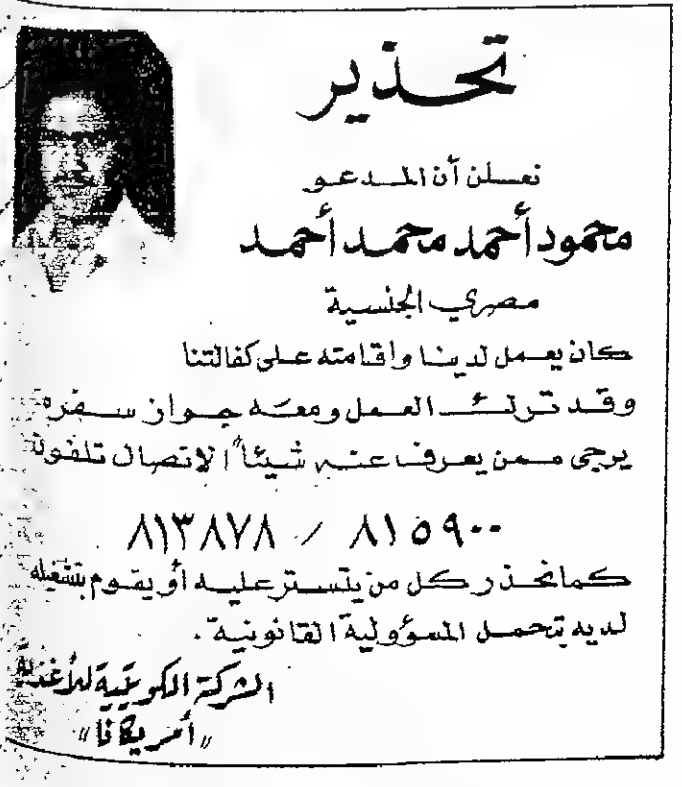 تحذير
نعلن أن المدعو
محمود أحمد محمد أحمد
مصري الجنسية
كان يعمل لدينا واقامته على كفالتنا
وقد ترك العمل ومعه جواز سفره
يرجى ممن يعرف عنه شيئاً الاتصال تلفون
٨١٥٩٠٠ / ٨١٣٨٧٨
كما نحذر كل من يتستر عليه أو يقوم بتشغيله
لديه يتحمل المسؤولية القانونية .
الشركة الكويتية للأغذية
"أمريكانا"